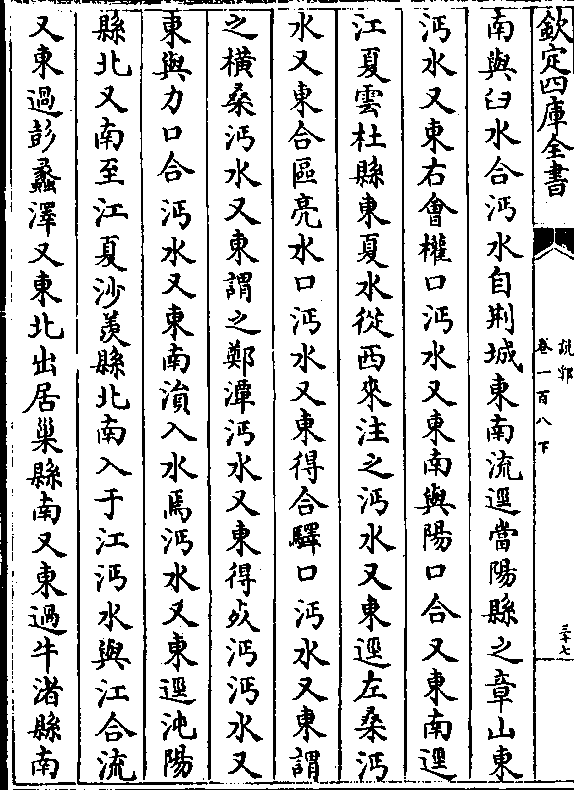 欽定四庫全書
說郛
卷一百八下
三十七
南與臼水合沔水自荆城東南流逕當陽縣之章山東
沔水又東右會權口沔水又東南與陽口合又東南逕
江夏雲杜縣東夏水從西來注之沔水又東逕左桑沔
水又東合區亮水口沔水又東得合驛口沔水又東謂
之橫桑沔水又東謂之鄭潭沔水又東得死沔沔水又
東與力口合沔水又東南溳入水焉沔水又東逕沌陽
縣北又南至江夏沙羨縣北南入于江沔水與江合流
又東過彭蠡澤又東北出居巢縣南又東過牛渚縣南